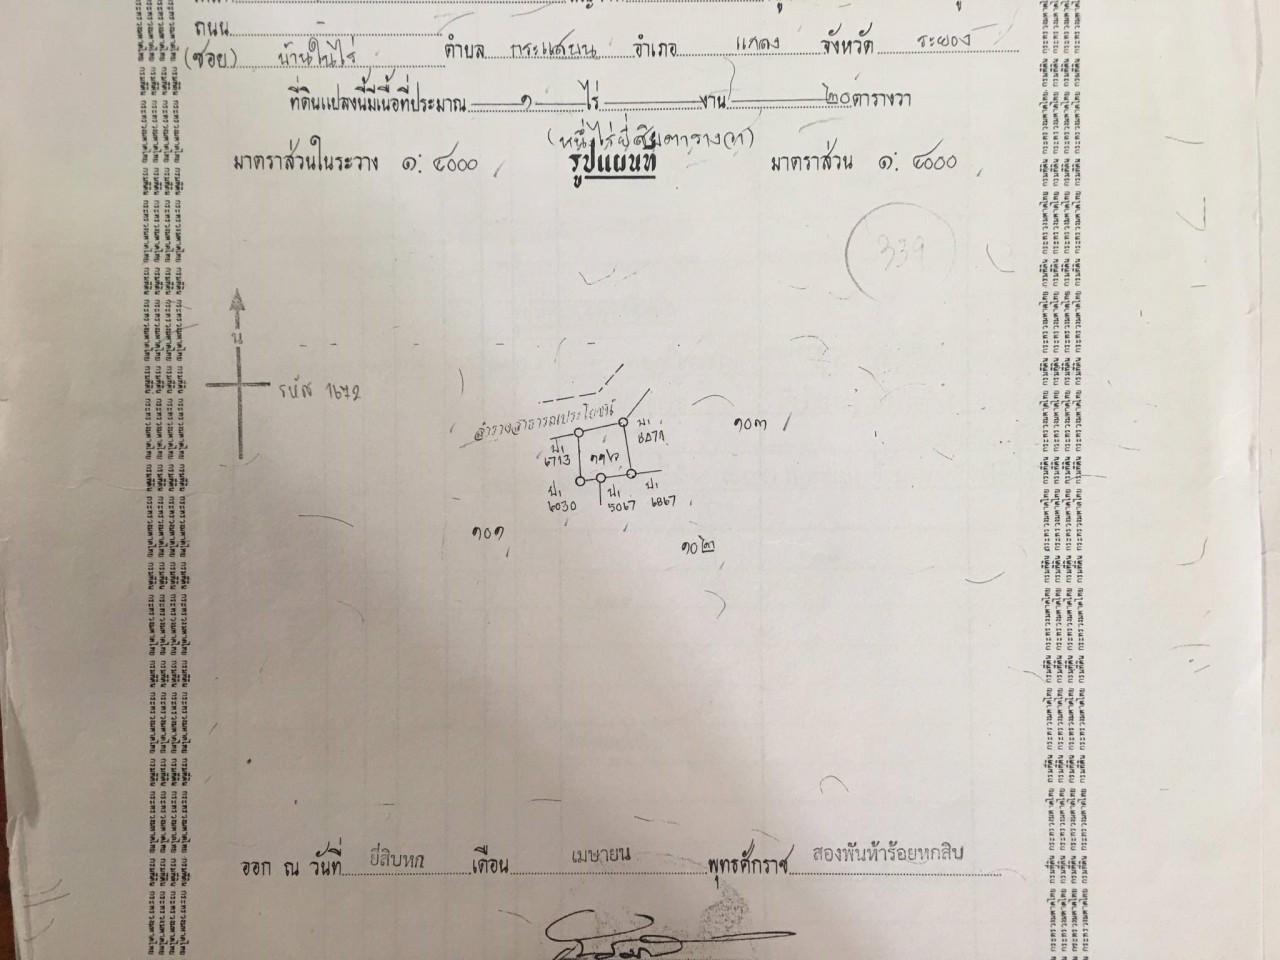 ถนน
(ซอย) บ้านในไร่ ตำบล กระแสบน อำเภอ แกลง จังหวัด ระยอง
ที่ดินแปลงนี้มีเนื้อที่ประมาณ ๑ ไร่ งาน ๒๐ ตารางวา
(หนึ่งไร่ยี่สิบตารางวา)
มาตราส่วนในระวาง ๑: ๔๐๐๐ รูปแผนที่ มาตราส่วน ๑: ๔๐๐๐
339
น
รหัส 1672
ลำรางสาธารณประโยชน์
๑๐๓
น.
6713
น.
6030
น.
5067
น.
6867
๑๐๑
๑๐๒
ออก ณ วันที่ ยี่สิบหก เดือน เมษายน พุทธศักราช สองพันห้าร้อยหกสิบ